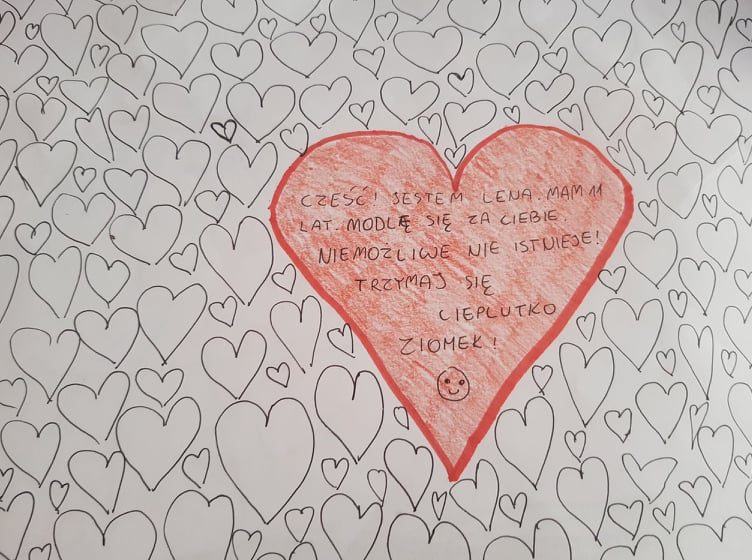 CZEŚĆ! JESTEM LENA. MAM 11
LAT. MODLĘ SIĘ ZA CIEBIE.
NIEMOŻLIWE NIE ISTNIEJE!
TRZYMAJ SIĘ
CIEPLUTKO
ZIOMEK!